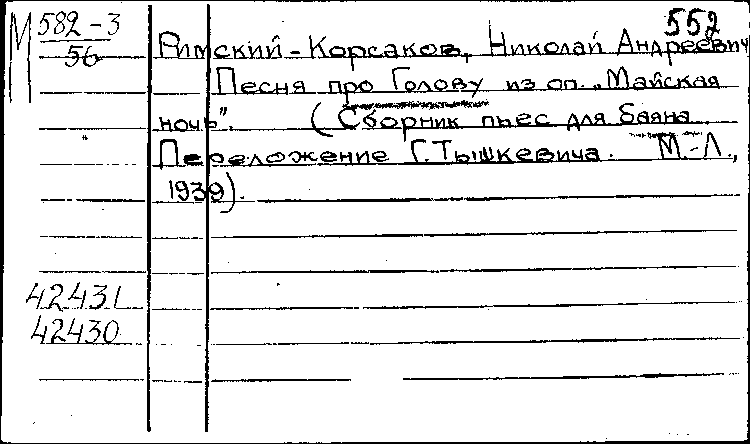 552
М 582-3
56
Римский-Корсаков, Николай Андреевич
Песня про Голову из оп. „Майская
ночь". (Сборник пьес для баяна.
Переложение Г. Тышкевича. М.-Л.,
1939).
42431
42430